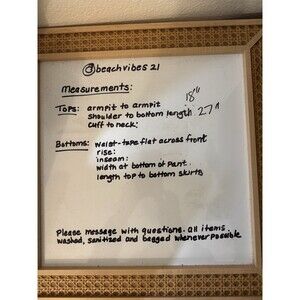 @beachvibes21
Measurements:
Tops: armpit to armpit 18"
shoulder to bottom length 27"
cuff to neck:
Bottoms: waist-tape flat across front
rise:
inseam:
width at bottom of pant.
length top to bottom skirts
Please message with questions. all items
washed, sanitized and bagged whenever possible